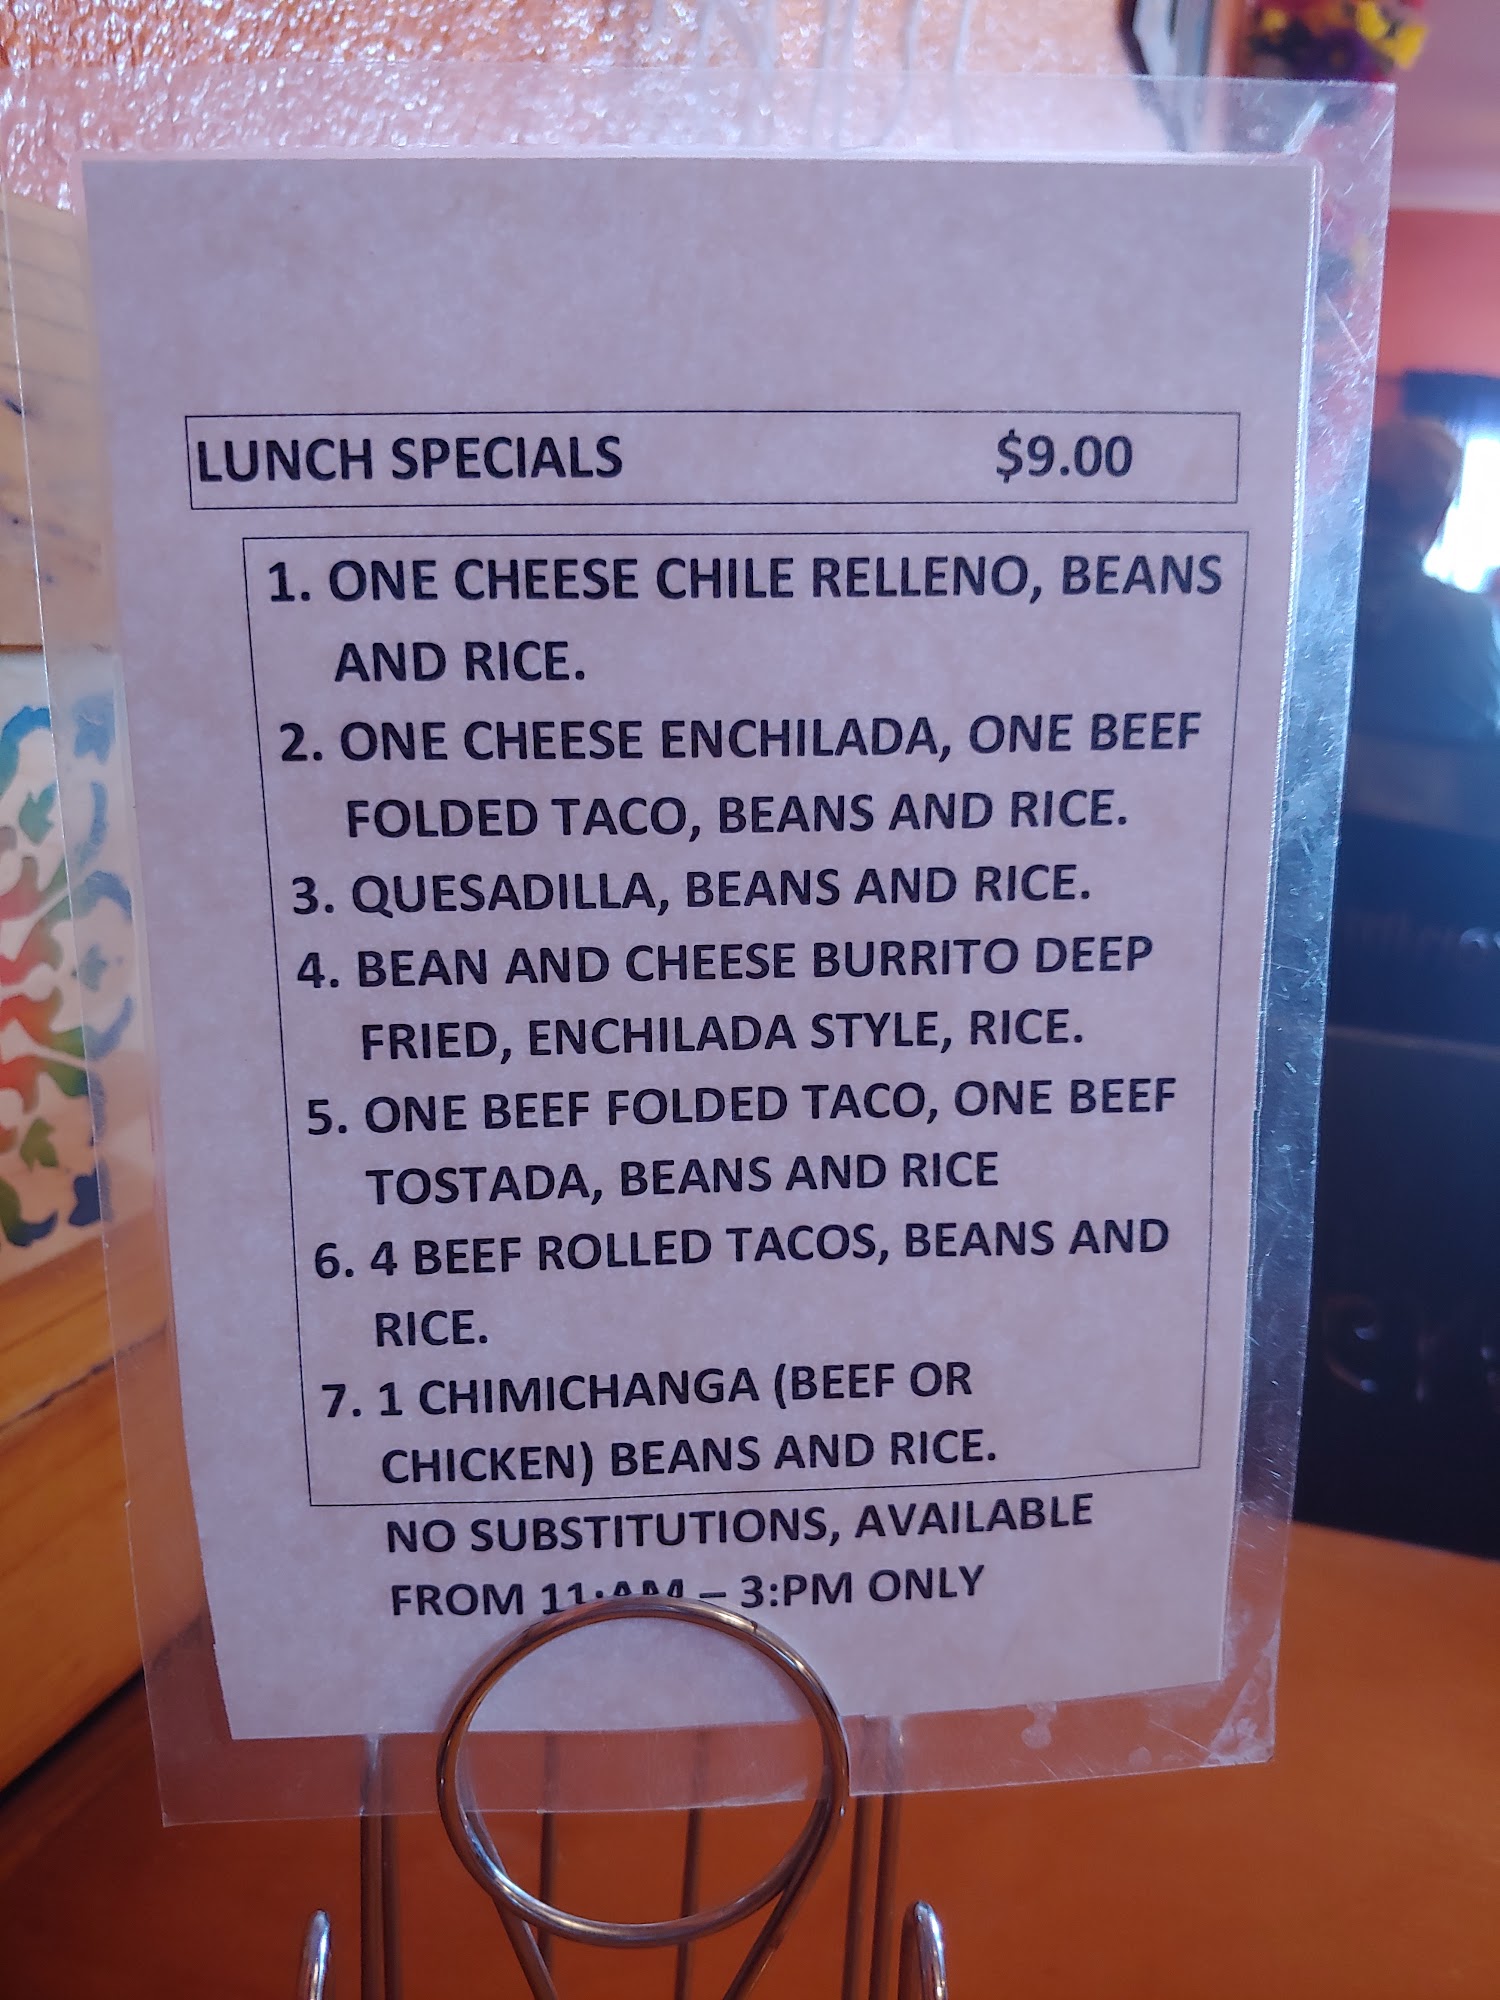 LUNCH SPECIALS $9.00
1. ONE CHEESE CHILE RELLENO, BEANS
AND RICE.
2. ONE CHEESE ENCHILADA, ONE BEEF
FOLDED TACO, BEANS AND RICE.
3. QUESADILLA, BEANS AND RICE.
4. BEAN AND CHEESE BURRITO DEEP
FRIED, ENCHILADA STYLE, RICE.
5. ONE BEEF FOLDED TACO, ONE BEEF
TOSTADA, BEANS AND RICE
6. 4 BEEF ROLLED TACOS, BEANS AND
RICE.
7. 1 CHIMICHANGA (BEEF OR
CHICKEN) BEANS AND RICE.
NO SUBSTITUTIONS, AVAILABLE
FROM 11:AM – 3:PM ONLY